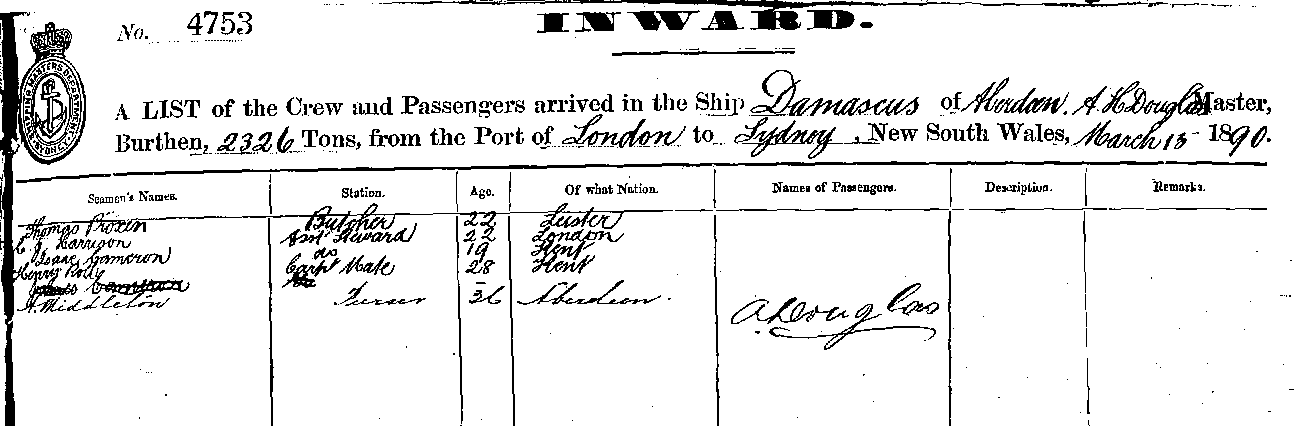 No. 4753
INWARD.
A LIST of the Crew and Passengers arrived in the Ship Damascus of Aberdeen. A H Douglas Master,
Burthen, 2326 Tons, from the Port of London to Sydney, New South Wales, March 13 1890.
Seamen's Names. Station. Age. Of what Nation. Names of Passengers. Description. Remarks.
Thomas Butcher 22
C J Harrison Asst Steward 22 London
Isaac Cameron do 19 Kent
Henry Carpt Mate 28 Kent
A. Middleton Purser 36 Aberdeen.
A. Douglas